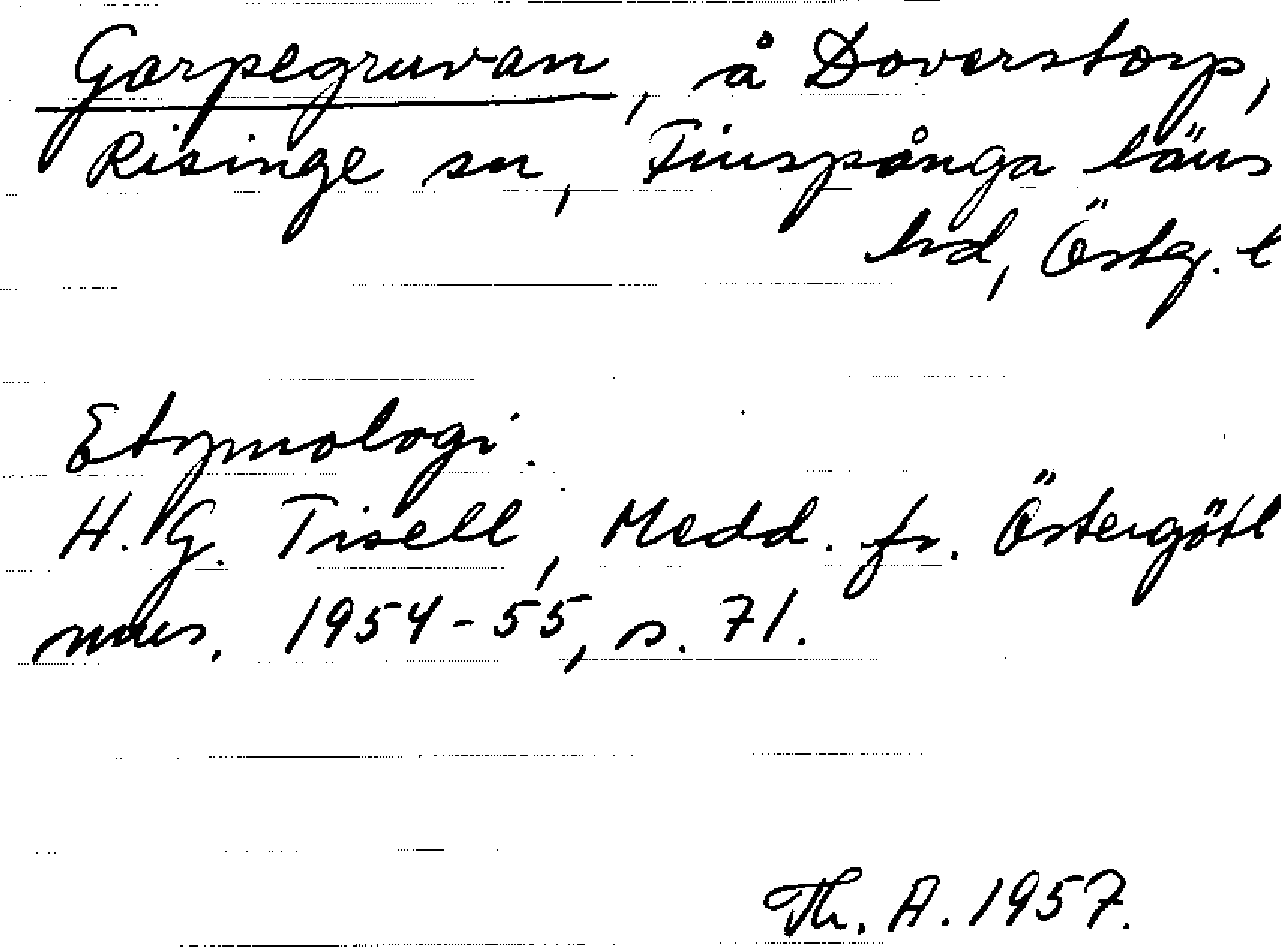 Garpegruvan, å Doverstorp,
Risinge sn, Finspånga läns
hd, Östg. l
Etymologi.
H. G. Tisell, Medd. fr. Östergötl
mus. 1954-55, s. 71.
Th. A. 1957.